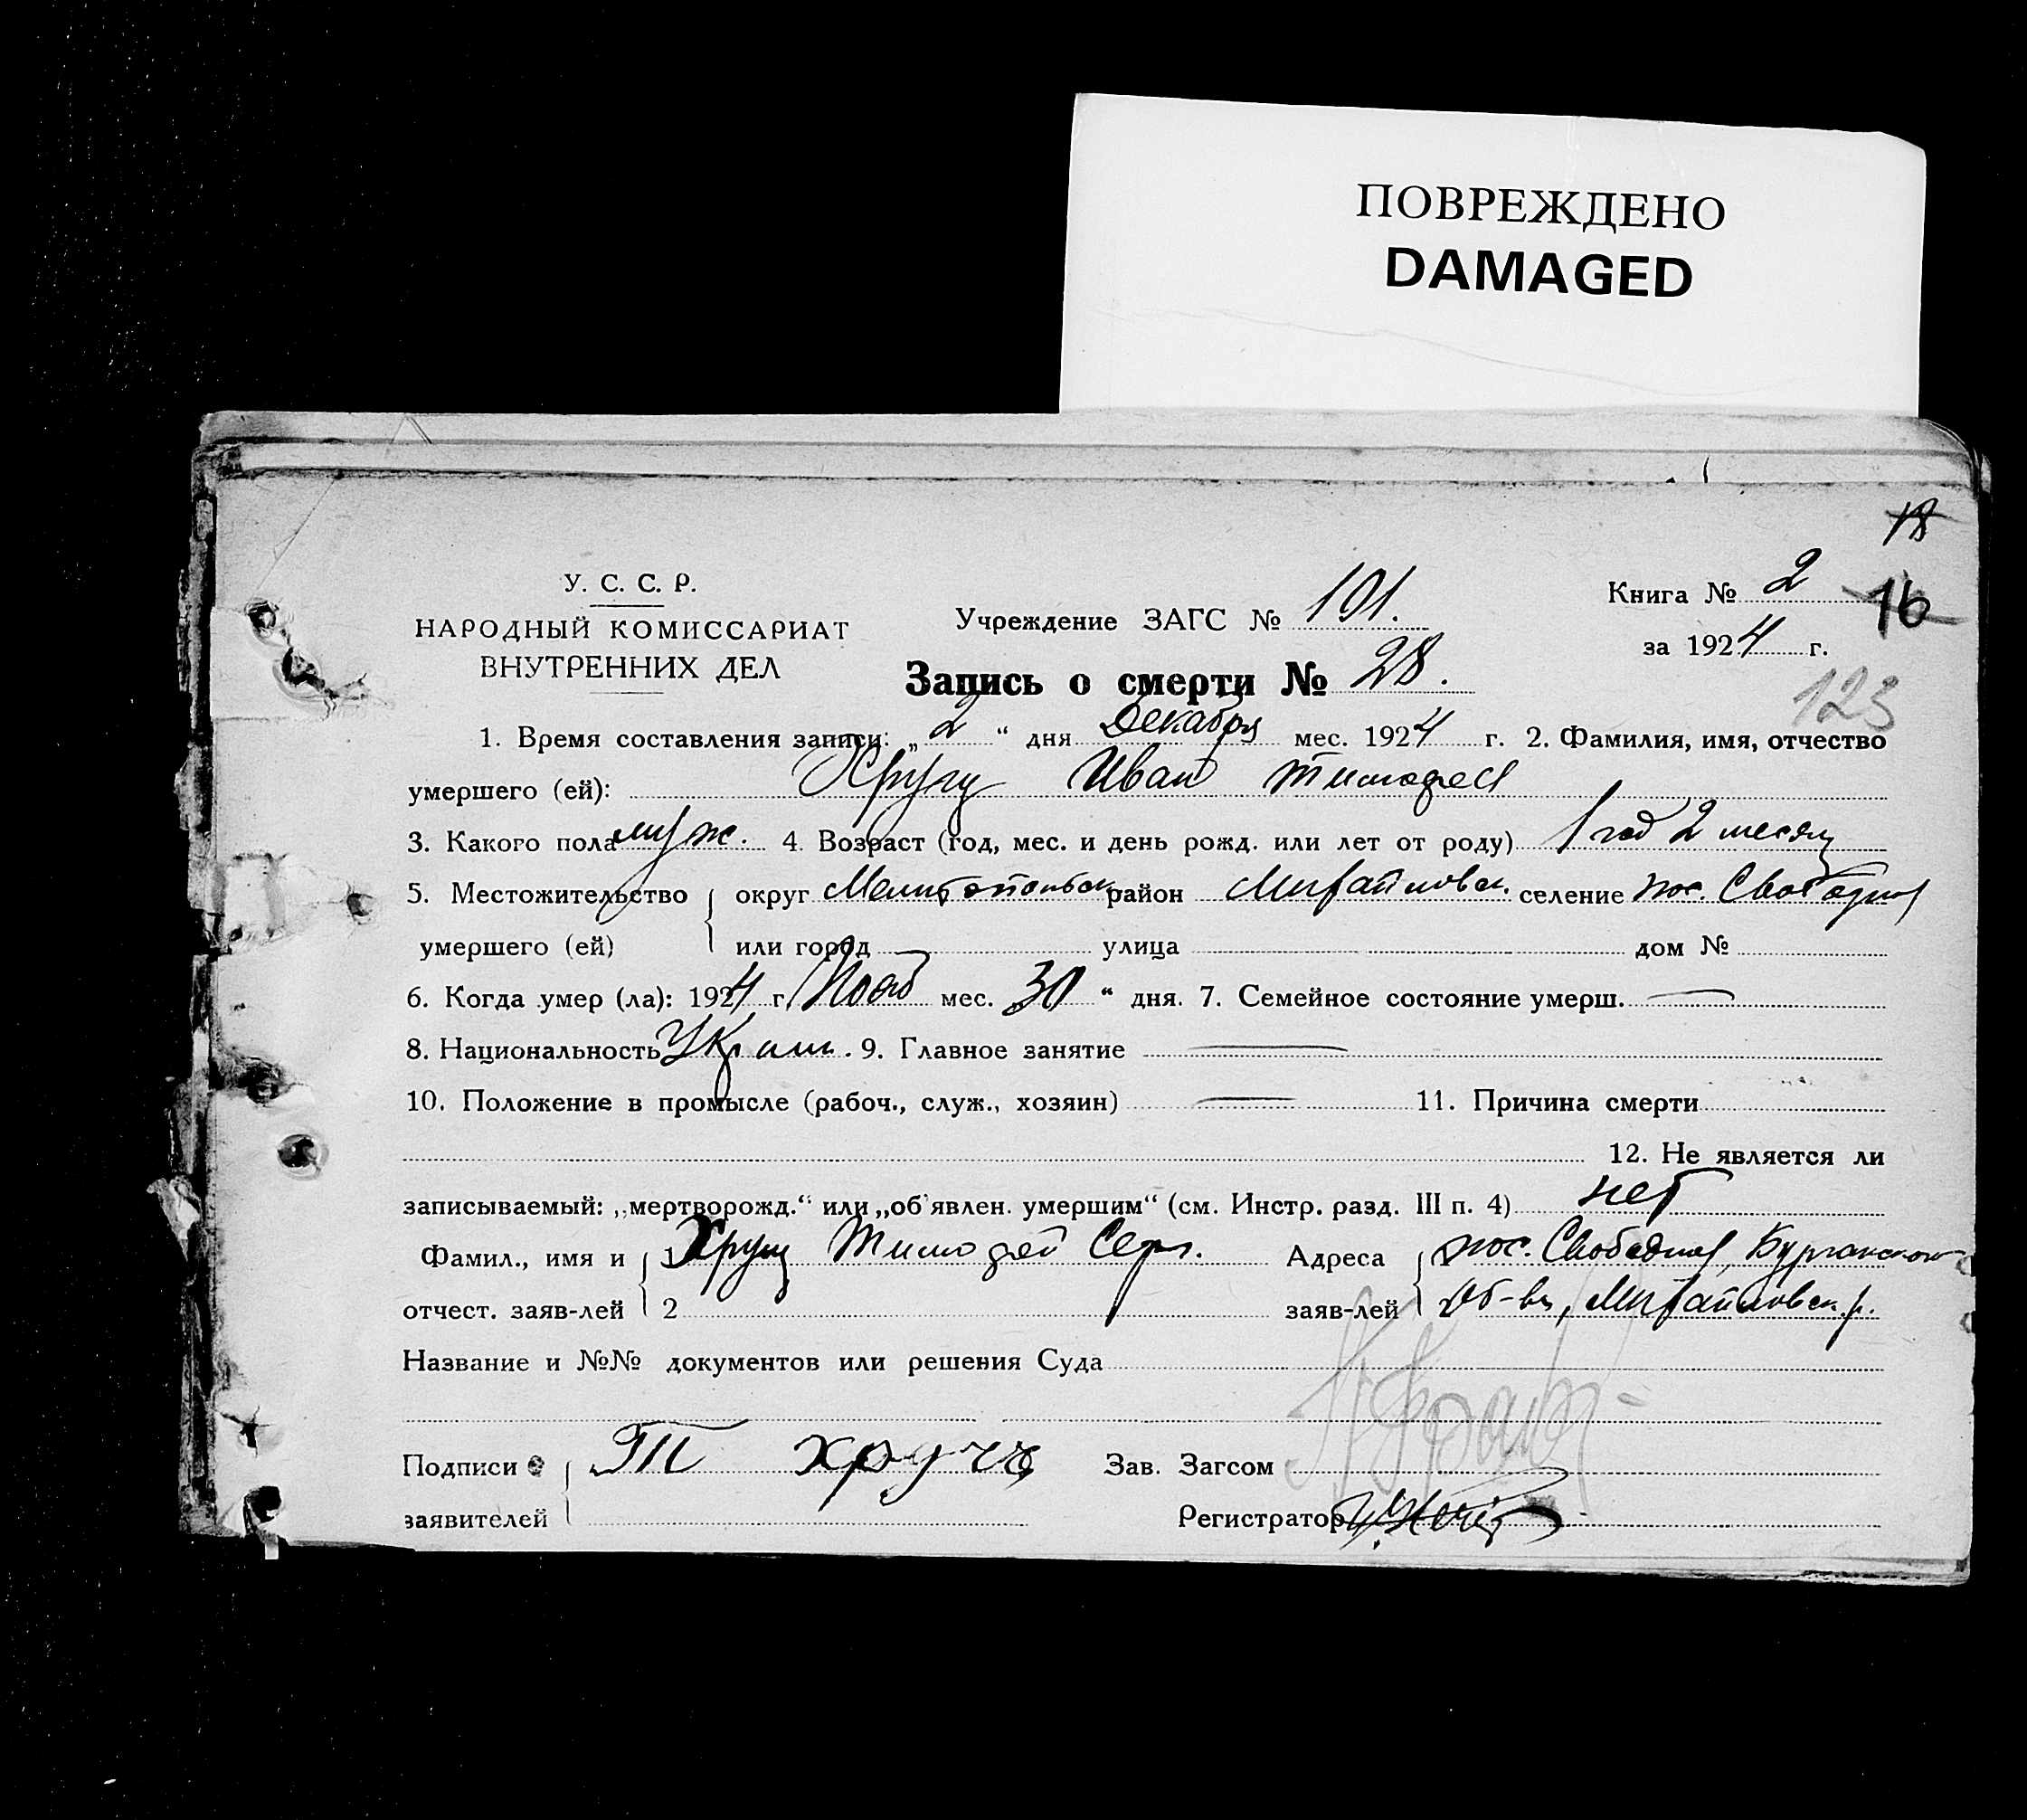 ПОВРЕЖДЕНО
DAMAGED
18
У. С. С. Р.
НАРОДНЫЙ КОМИССАРИАТ
ВНУТРЕННИХ ДЕЛ
Учреждение ЗАГС № 101.
Книга № 2
16
за 1924 г.
123
Запись о смерти № 28.
1. Время составления записи: „2“ дня Декабря мес. 1924 г. 2. Фамилия, имя, отчество
умершего (ей): Хрущ Иван Тимофея
3. Какого пола муж. 4. Возраст (год, мес. и день рожд. или лет от роду) 1 год 2 месяц
5. Местожительство округ Мелитопольск район Михайловск. селение пос. Свободная
умершего (ей) или город улица дом №
6. Когда умер (ла): 1924 г. Нояб мес. „30“ дня. 7. Семейное состояние умерш. —
8. Национальность Украин. 9. Главное занятие —
10. Положение в промысле (рабоч., служ., хозяин) — 11. Причина смерти
12. Не является ли
записываемый: „мертворожд.“ или „об'явлен. умершим“ (см. Инстр. разд. III п. 4) нет
Фамил., имя и 1 Хрущ Тимофей Серг. Адреса 1 пос. Свободная, Бурчанского
отчест. заяв-лей 2 заяв-лей Об-ва, Михайловск. р.
Название и №№ документов или решения Суда
Подписи Т Хручь Зав. Загсом
заявителей Регистратор